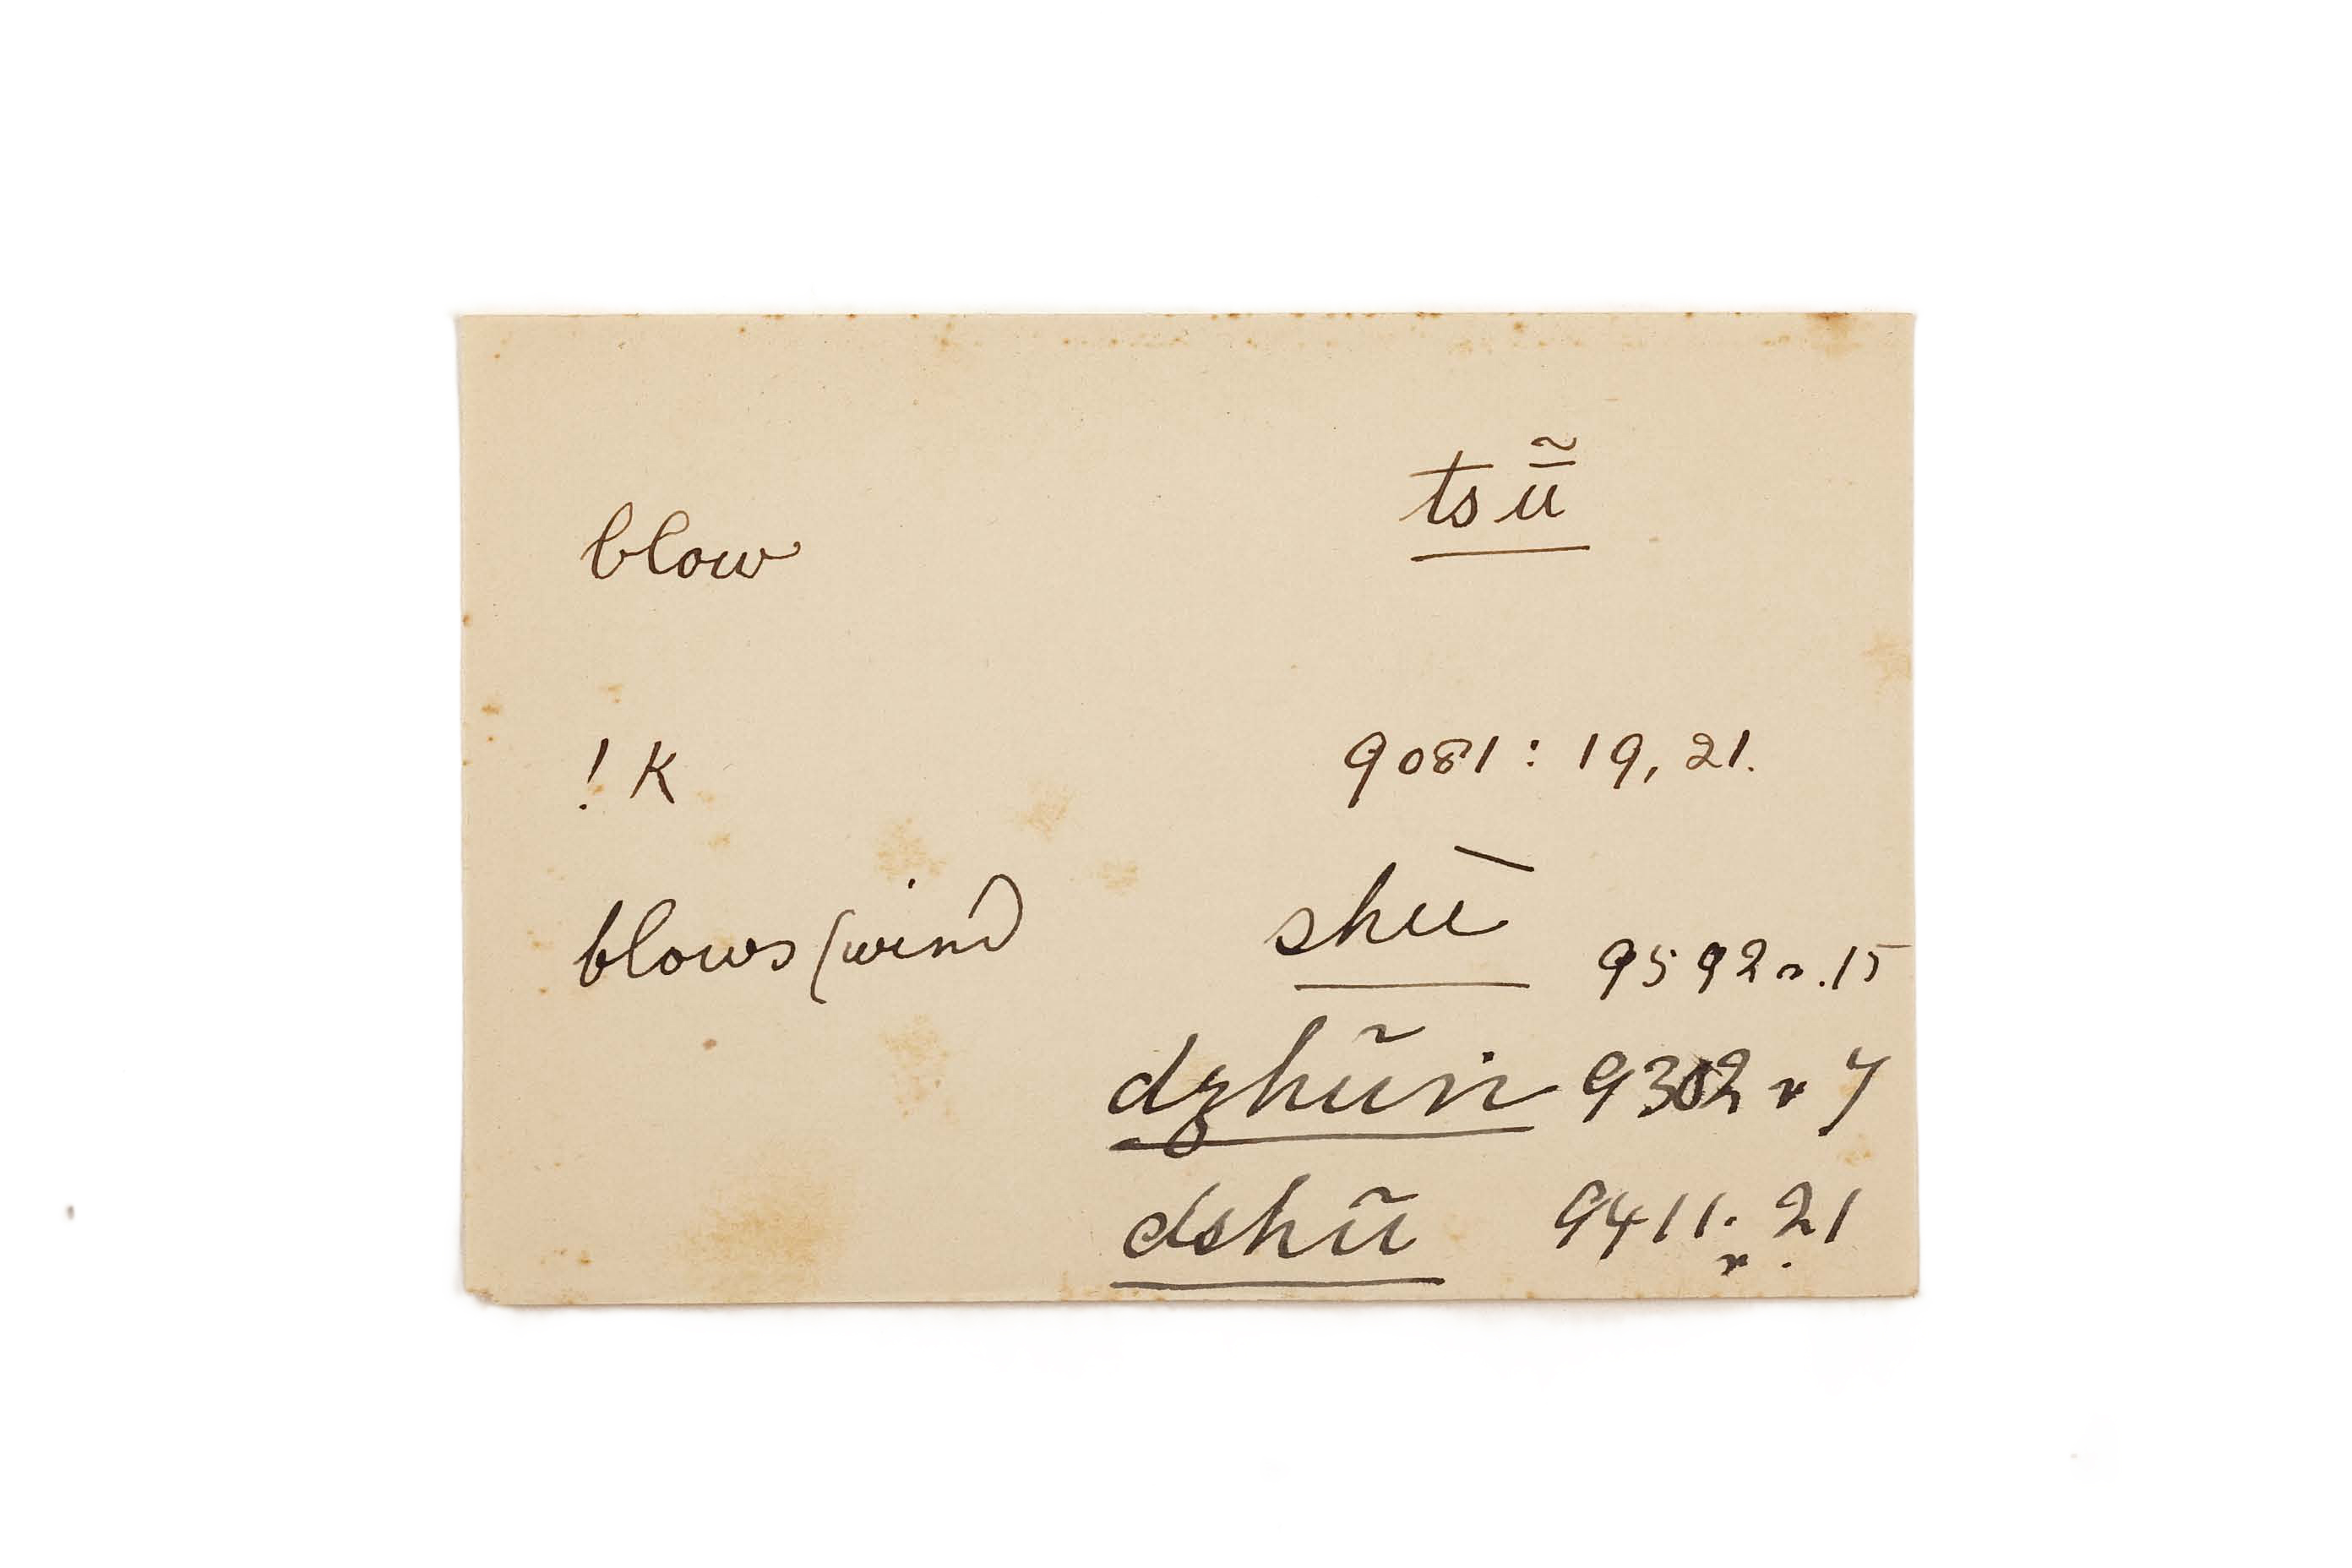 blow tsū̃
! K 9081 : 19, 21.
blows (wind) shū 9592 r. 15
dzhũin 9302 r 7
dshũ 9411. r. 21